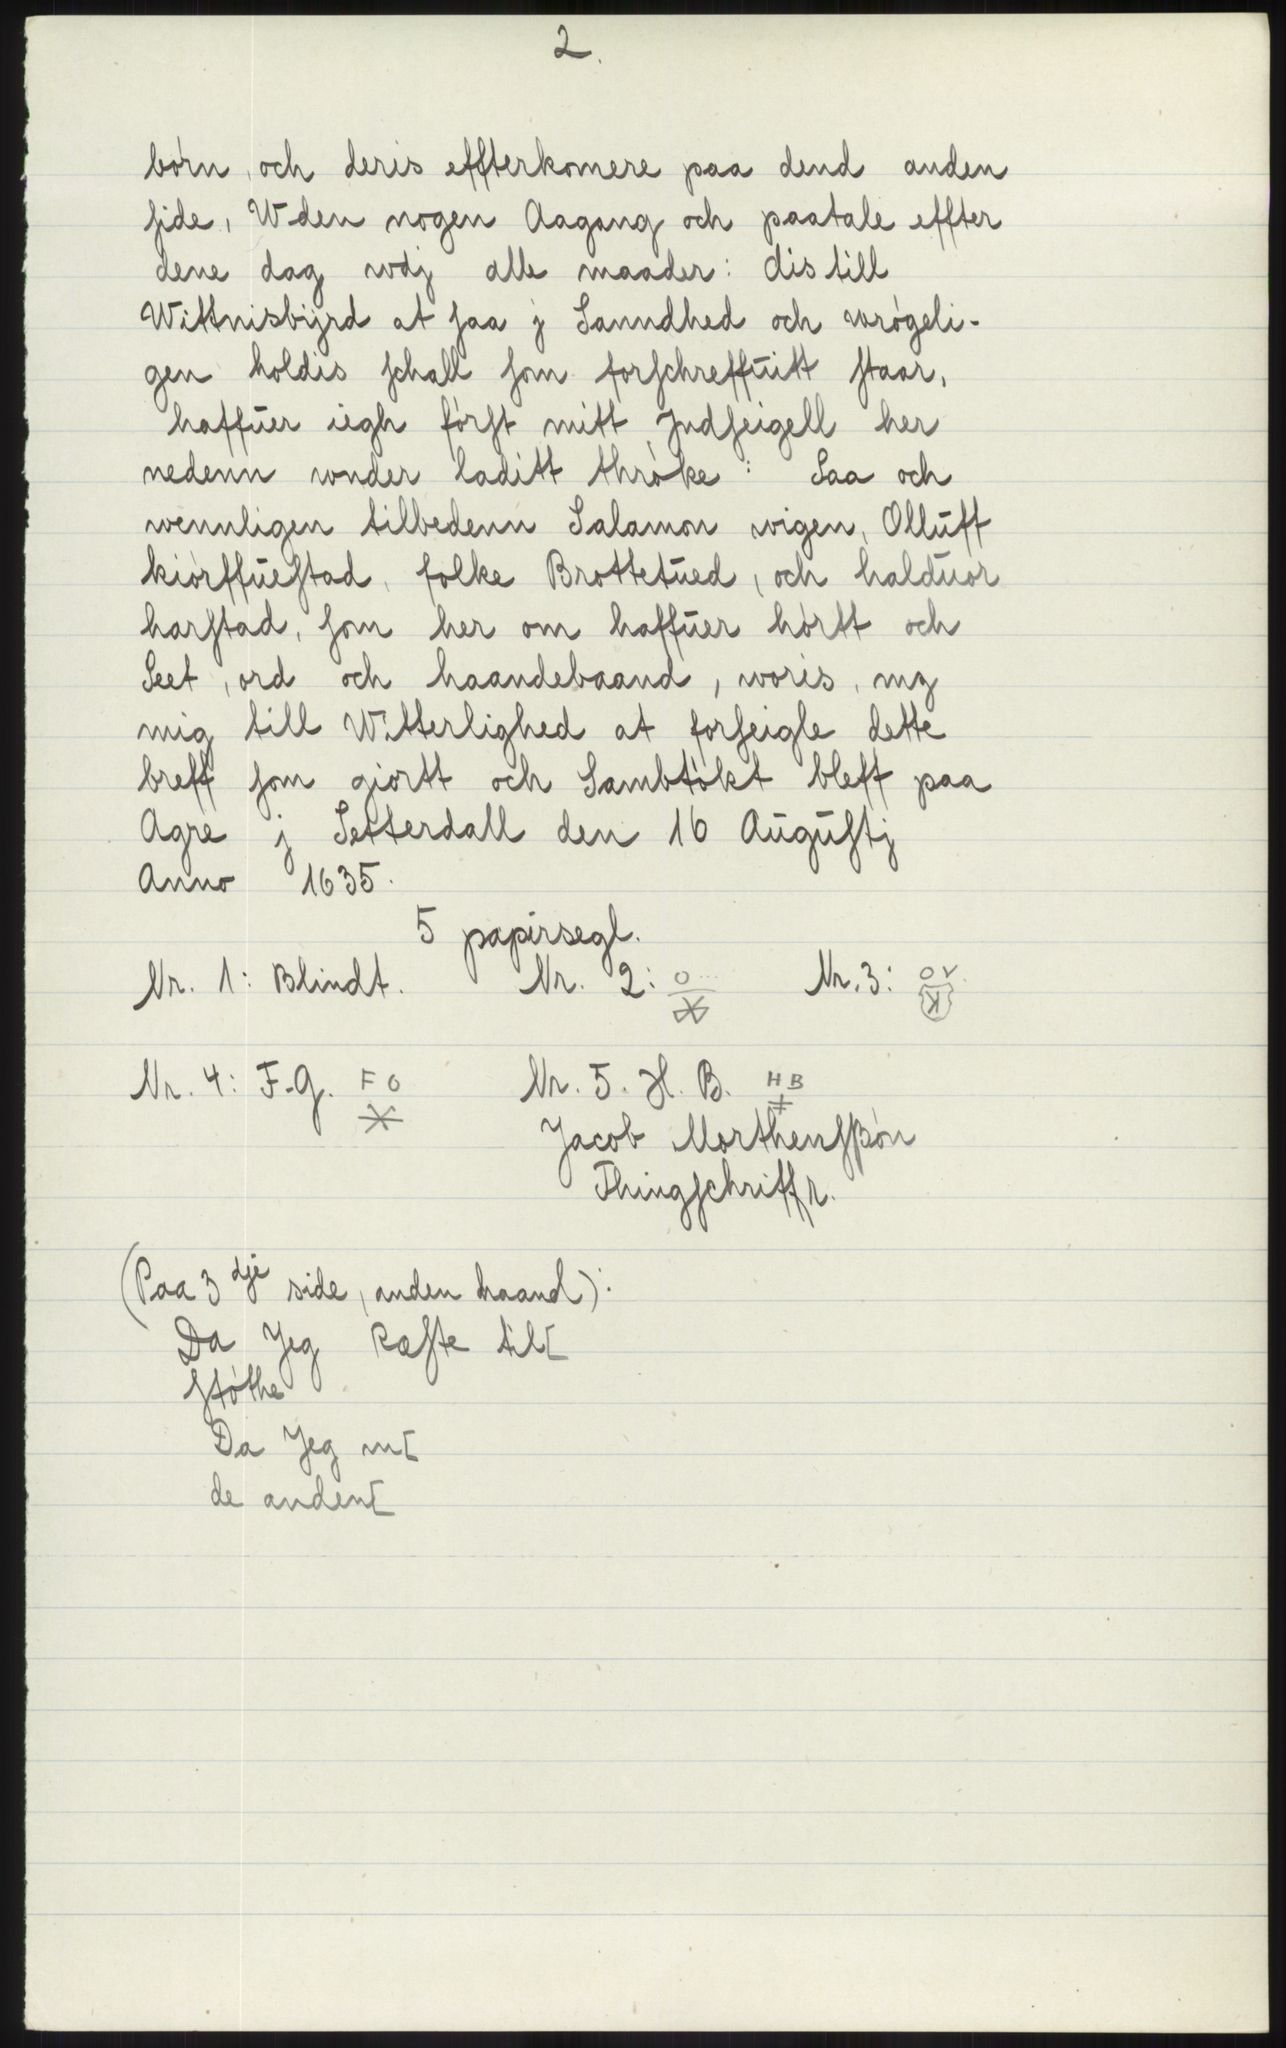 2.
børn, och deris effterkomere paa dend anden
side, Wden nogen Aagang och paatale effter
dene dag wdj alle maader: dis till
Wittnisbyrd at saa j Sanndhed och wrøgeli-
gen holdis schall som forschreffuitt staar,
haffuer iegh først mitt Jndseigell her
nedenn wnder laditt thrøke: Saa och
wennligen tilbedenn Salamon wigen, Olluff
kiørffuestad, folke Brottetued, och halduor
harstad, som her om haffuer hørtt och
Seet, ord och haandebaand, woris, mz
mig till Witterlighed at forseigle dette
breff som giortt och Sambtøkt bleff paa
Agre j Setterdall den 16 Augustj
Anno 1635.
5 papirsegl.
Nr. 1: Blindt. Nr. 2: O Nr. 3: OV K
Nr. 4: F.G. F G Nr. 5. H. B. H B
Jacob Morthensßøn
Thingschriffr.
(Paa 3dje side, anden haand):
Da Jeg Ræste til[
støthe
Da Jeg m[
de anden[